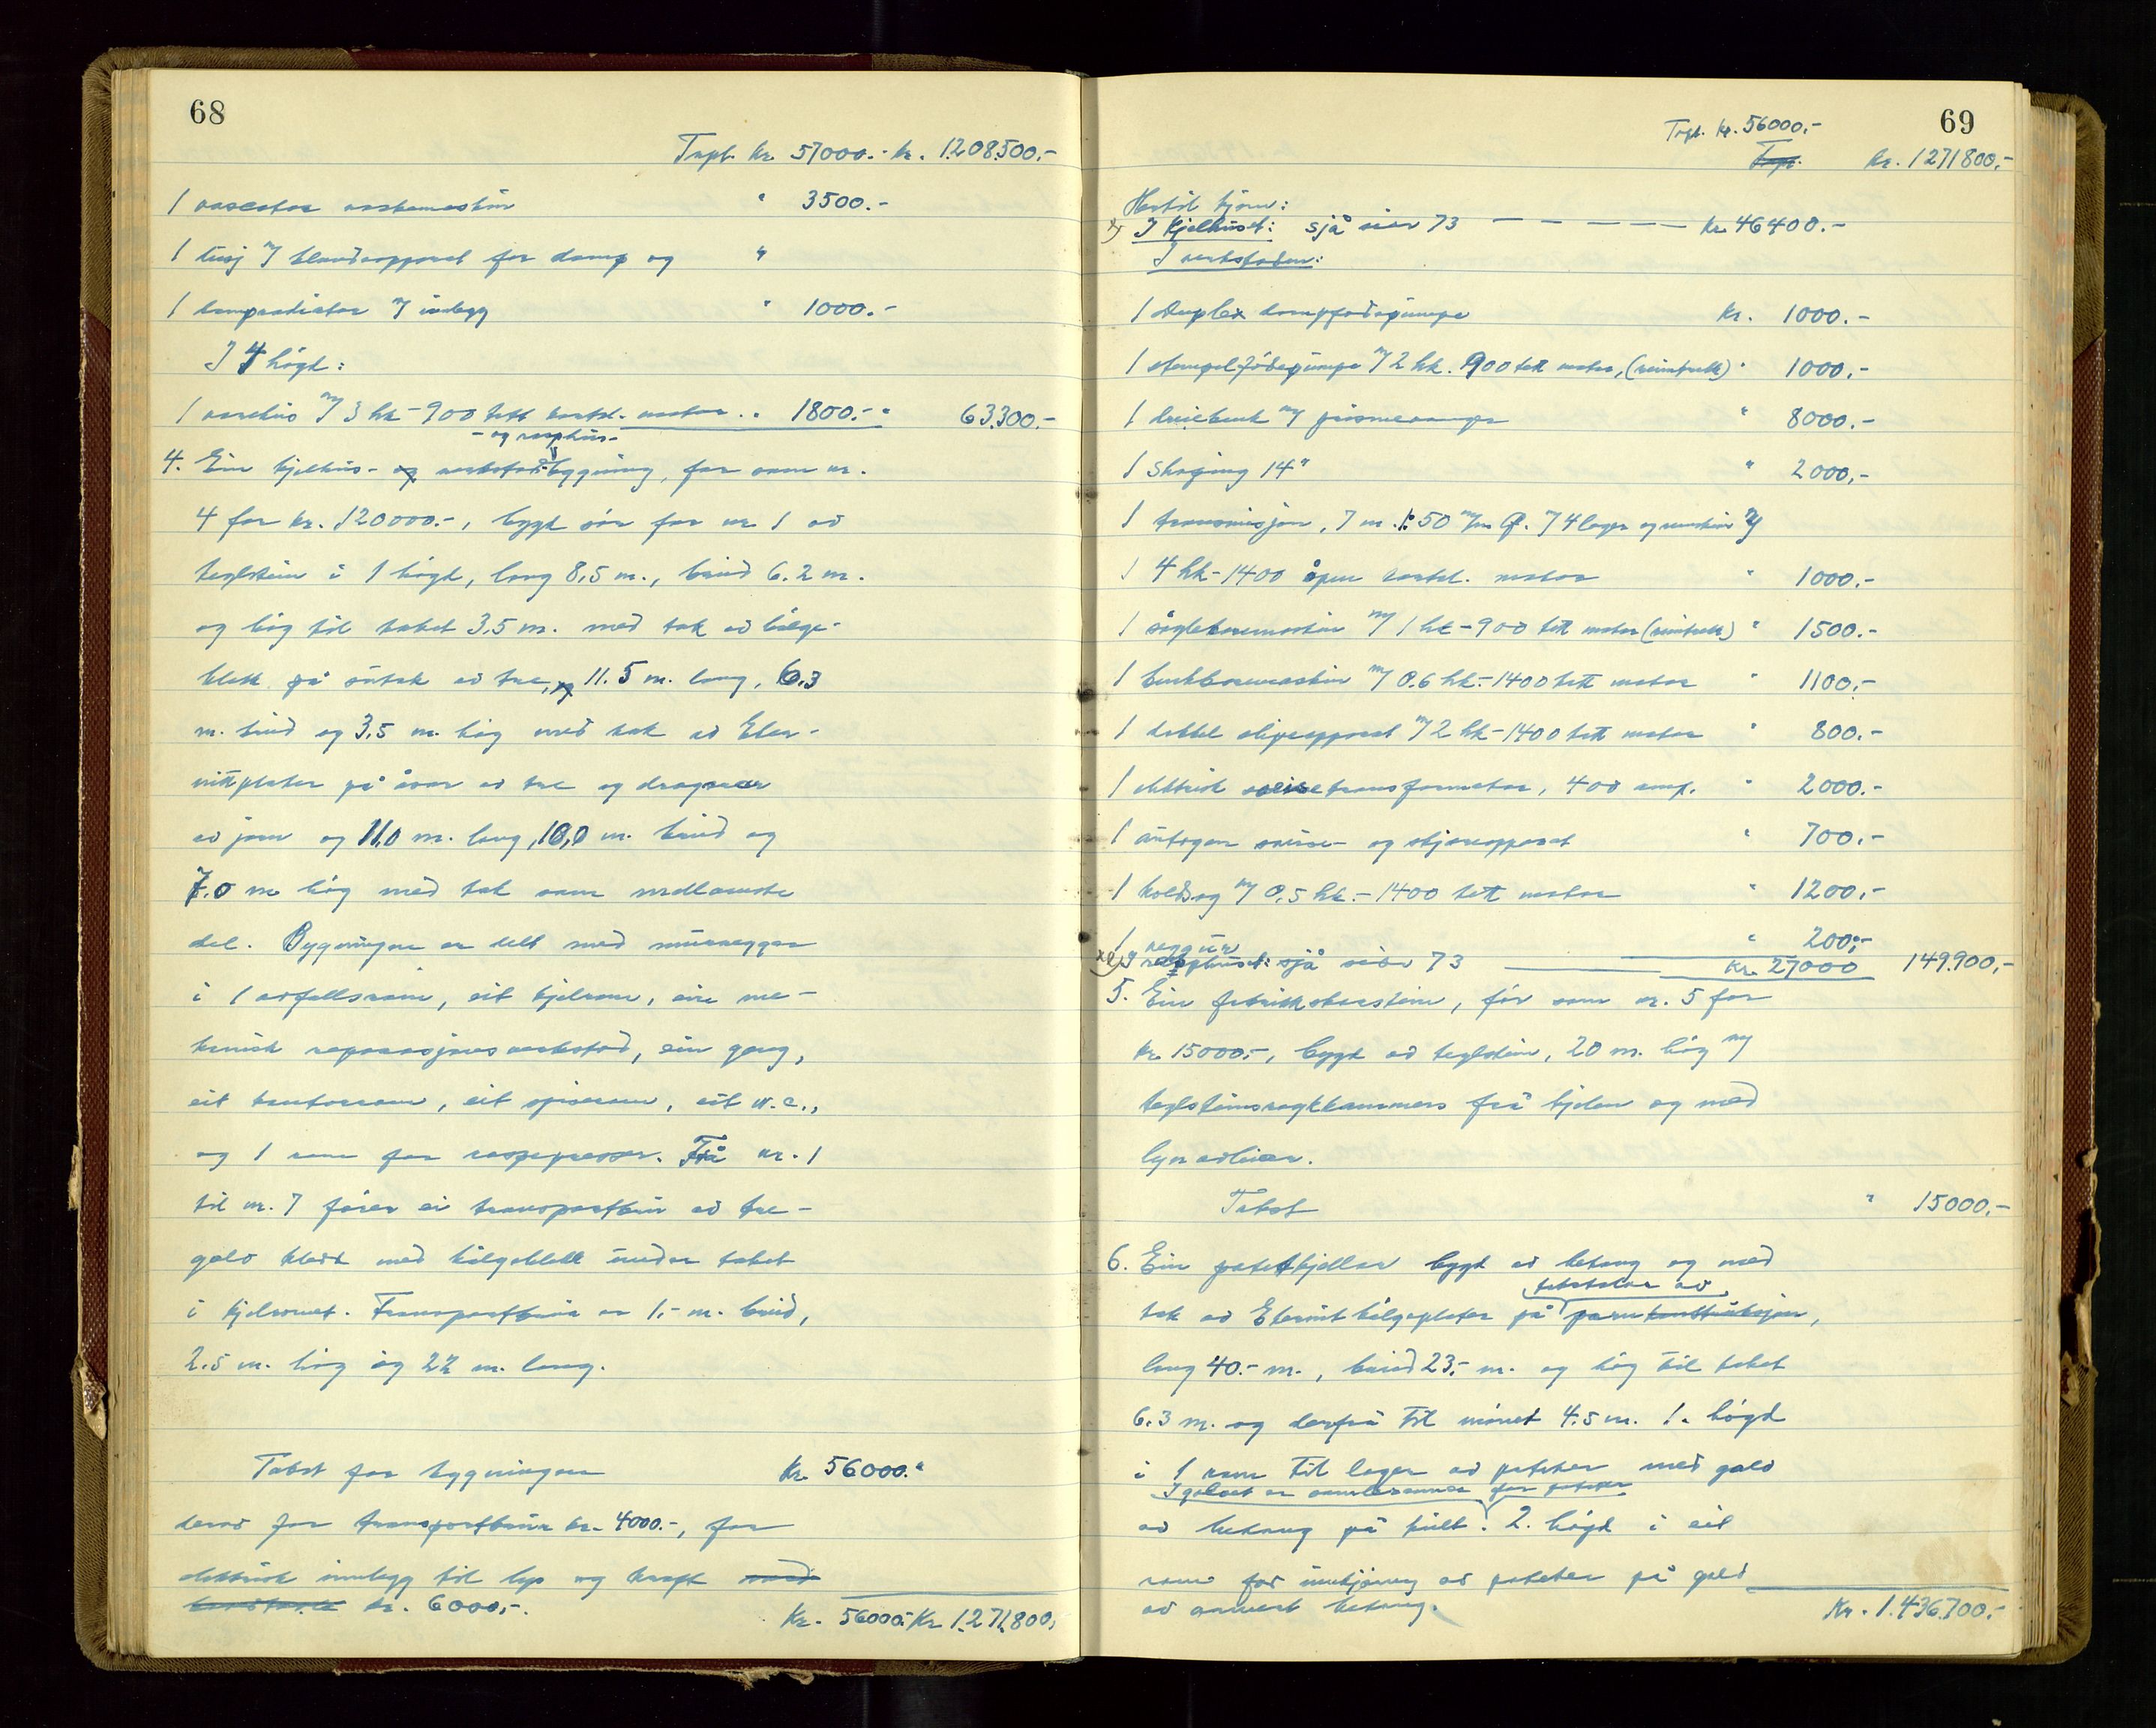 68
Trspt. kr. 57000.- kr. 1.208.500.-
1 vaskemaskin " 3500.-
1 m/ blandeapparat for damp og "
1 m/ innlegg " 1000.-
I 4 høgd:
1 m/ 3 hk - 900 tett kortsl. motor .. 1800.- " 63.300.-
- og rasphus-
4. Ein kjelhus- og verkstadbygning, før som nr.
4 for kr. 120000.-, bygd sør for nr 1 av
teglstein i 1 høgd, lang 8,5 m., breid 6.2 m.
og høg til taket 3,5 m. med tak av bølge-
blekk på sutak av tre, og 11.5 m. lang, 6,3
m. breid og 3,5 m. høg med tak av Eter-
nittplater på åsar av tre og dragarar
av jarn og 11,0 m. lang, 10,0 m. breid og
7.0 m høg med tak som nedlemste
del. Bygningen er delt med murveggar
i 1 avfallsrom, eit kjelrom, ein me-
kanisk reparasjonsverkstad, ein gang,
eit kontorrom, eit spiserom, eit w.c.,
og 1 rom for raspepresser. Frå nr. 1
til nr. 7 fører ei transportbru av tre-
golv kledt med bølgeblekk under taket
i kjelromet. Transportbrua er 1,- m. breid,
2.5 m. høg og 22 m. lang.
Takst for bygningen kr. 56000."
derav for transportbrua kr. 4000.-, for
elektrisk innlegg til lys og kraft med
kr. 6000,-.
Kr. 56000.- Kr 1.271.800,
69
Trspt. kr. 56000.-
Trspt. kr. 1271800,-
Hertil kjem:
x) I kjelhuset: sjå sida 73 — — — — — kr. 46400.-
I verkstaden:
1 Duplex dampfødepumpe kr. 1000.-
1 stempelfødepumpe m/ 2 hk. 900 tett motor, (reimtrekk) " 1000,-
1 dreiebenk m/ " 8000.-
1 Shaping 14" " 2000,-
1 transmisjon, 7 m. 50 m/m m/ 4 lager og m/
1 4 hk - 1400 åpen kortsl. motor " 1000.-
1 søyleboremaskin m/ 1 hk - 900 tett motor (reimtrekk) " 1500.-
1 benkboremaskin m/ 0.6 hk. - 1400 tett motor " 1100.-
1 dobbel slipeapparat m/ 2 hk - 1400 tett motor " 800.-
1 elektrisk sveisetransformator, 400 amp. " 2000.-
1 autogen sveise- og skjæreapparat " 700.-
1 koldsag m/ 0,5 hk. - 1400 tett motor " 1200,-
1 veggur " 200,-
xx) I rasphuset: sjå sida 73 ——— kr. 27000 149.900,-
5. Ein fabrikkskorstein, før som nr. 5 for
kr. 15000,-, bygd av teglstein, 20 m. høg m/
teglsteinsrøykkammers frå kjelen og med
lynavleiar.
Takst " 15000,-
6. Ein potetkjellar bygd av betong og med
takstolar av
tak av Eternit bølgeplater på jarnkonstruksjon,
lang 40.- m., breid 23,- m. og høg til taket
6.3 m. og derfrå til mønet 4.5 m. 1. høgd
i 1 rom til lager av poteter med golv
I golvet er samlerenner for poteter
av betong på kult. 2. høgd i eit
rom for innkjøring av poteter på golv
av armert betong.
Kr. 1.436.700,-